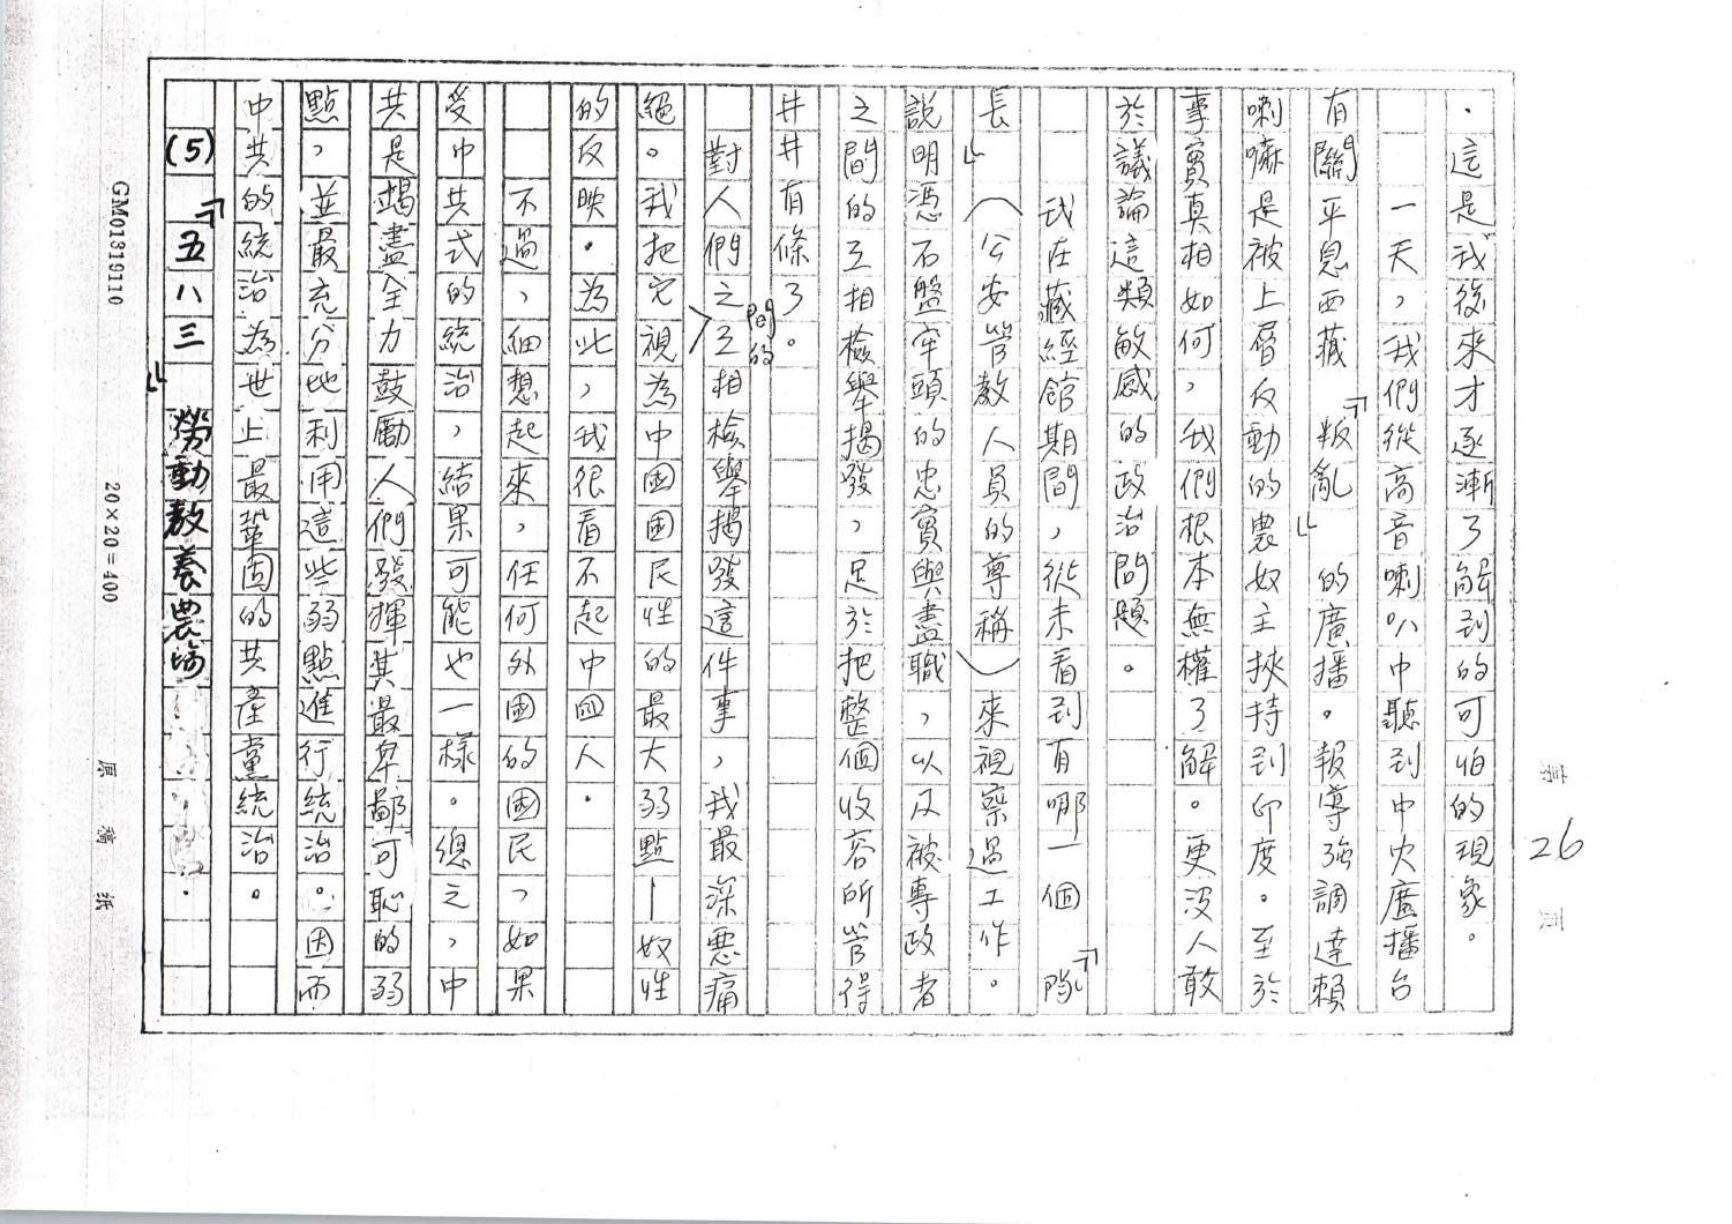 。這是我後來才逐漸了解到的可怕的現象。
一天，我們從高音喇叭中聽到中央廣播台
有關平息西藏『叛亂』的廣播。報導強調達賴
喇嘛是被上層反動的農奴主挾持到印度。至於
事實真相如何，我們根本無權了解。更沒人敢
於議論這類敏感的政治問題。
我在藏經館期間，從未看到有哪一個『隊
長』（公安管教人員的尊稱）來視察過工作。
說明憑石盤牢頭的忠實與盡職，以及被專政者
之間的互相檢舉揭發，足於把整個收容所管得
井井有條了。
對人們之間的互相檢舉揭發這件事，我最深惡痛
絕。我把它視為中國國民性的最大弱點—奴性
的反映。為此，我很看不起中國人。
不過，細想起來，任何外國的國民，如果
受中共式的統治，結果可能也一樣。總之，中
共是竭盡全力鼓勵人們發揮其最卑鄙可恥的弱
點，並最充分地利用這些弱點進行統治。因而
中共的統治為世上最鞏固的共產黨統治。
(5)『五八三』勞動教養農場
第 26 頁
GM01319110 20×20=400 原稿紙